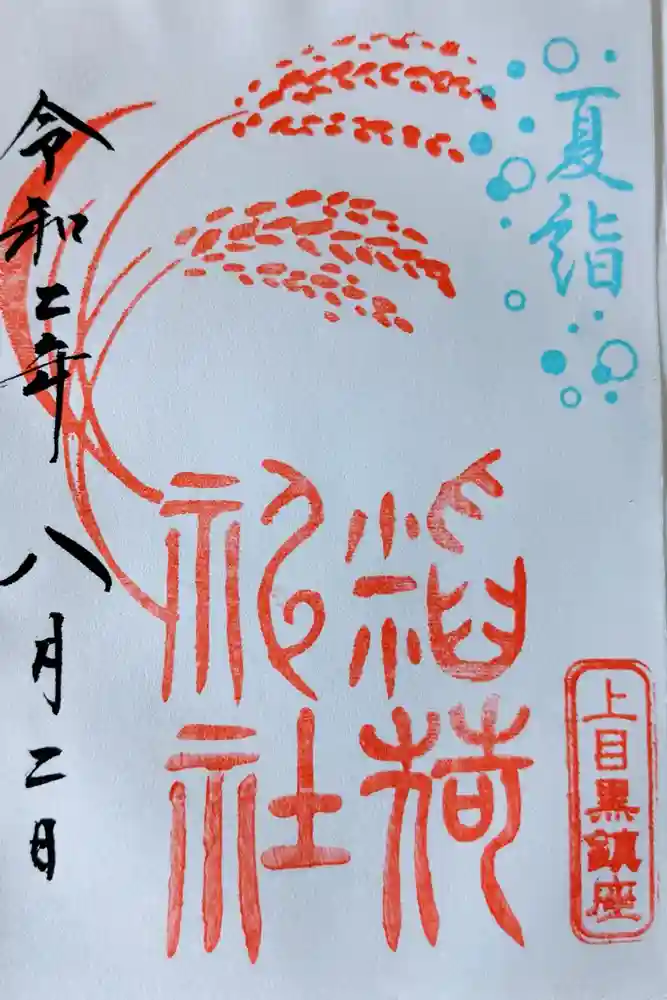 夏詣
上目黒鎮座
稲荷
神社
令和二年八月二日